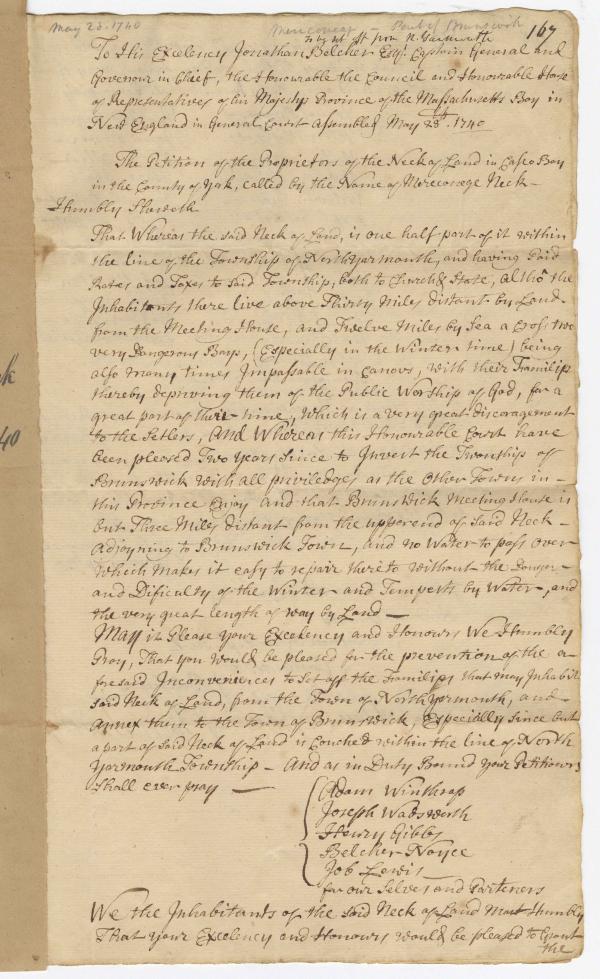 May 23. 1740
Mereconeag
Part of Brunswick
167
to be set off from N. Yarmouth
To His Excelency Jonathan Belcher Esqr. Captain General and
Governour in Chief, the Honourable the Council and Honourable House
of Representatives of his Majestys Province of the Massachusetts Bay in
New England in General Court Assembled May 28th. 1740
The Petition of the Proprietors of the Neck of Land in Casco Bay
in the County of York, called by the Name of Mereconege Neck-
Humbly Sheweth
That Whereas the said Neck of Land, is one half part of it within
the line of the Township of North Yarmouth, and having Paid
Rates and Taxes to said Township, both to Church & State, altho the
Inhabitants there live above Thirty Miles distant by Land-
from the Meeting House, and Twelve Miles by Sea a Cross two
very Dangerous Bays, (Especially in the Winter time) being
also many times Impassable in Canoos, with their Familys
thereby depriving them of the Public Worship of God, for a
great part of their time, Which is a very great discoragement
to the Setlers, And Whereas this Honourable Court have
been pleased Two Years Since to Invest the Township of
Brunswick with all priviledges as the Other Towns in-
this Province Enjoy And that Brunswick Meeting House is
but Three Miles distant from the upper end of said Neck-
Adjoyning to Brunswick Town, and no Water to pass over
Which makes it easy to repair thereto without the Danger-
and Dificulty of the Winter and Tempests by Water, and
the very great length of way by Land-
May it Please your Excelency and Honours We Humbly
Pray, That you would be pleased for the prevention of the a-
foresaid Inconveniences to Set off the Familys that may Inhabit
said Neck of Land, from the Town of North Yarmouth, and-
Annex them to the Town of Brunswick, Especially Since but
a part of said Neck of Land is Couched within the line of North
Yarmouth Township- And as in Duty Bound your Petitioners
Shall ever pray-
Adam Winthrop
Joseph Wadsworth
Henry Gibbs
Belcher Noyce
Job Lewis
for our Selves and Parteners
We the Inhabitants of the said Neck of Land Most Humbly
That your Excelency and Honours would be pleased to Grant
the
40